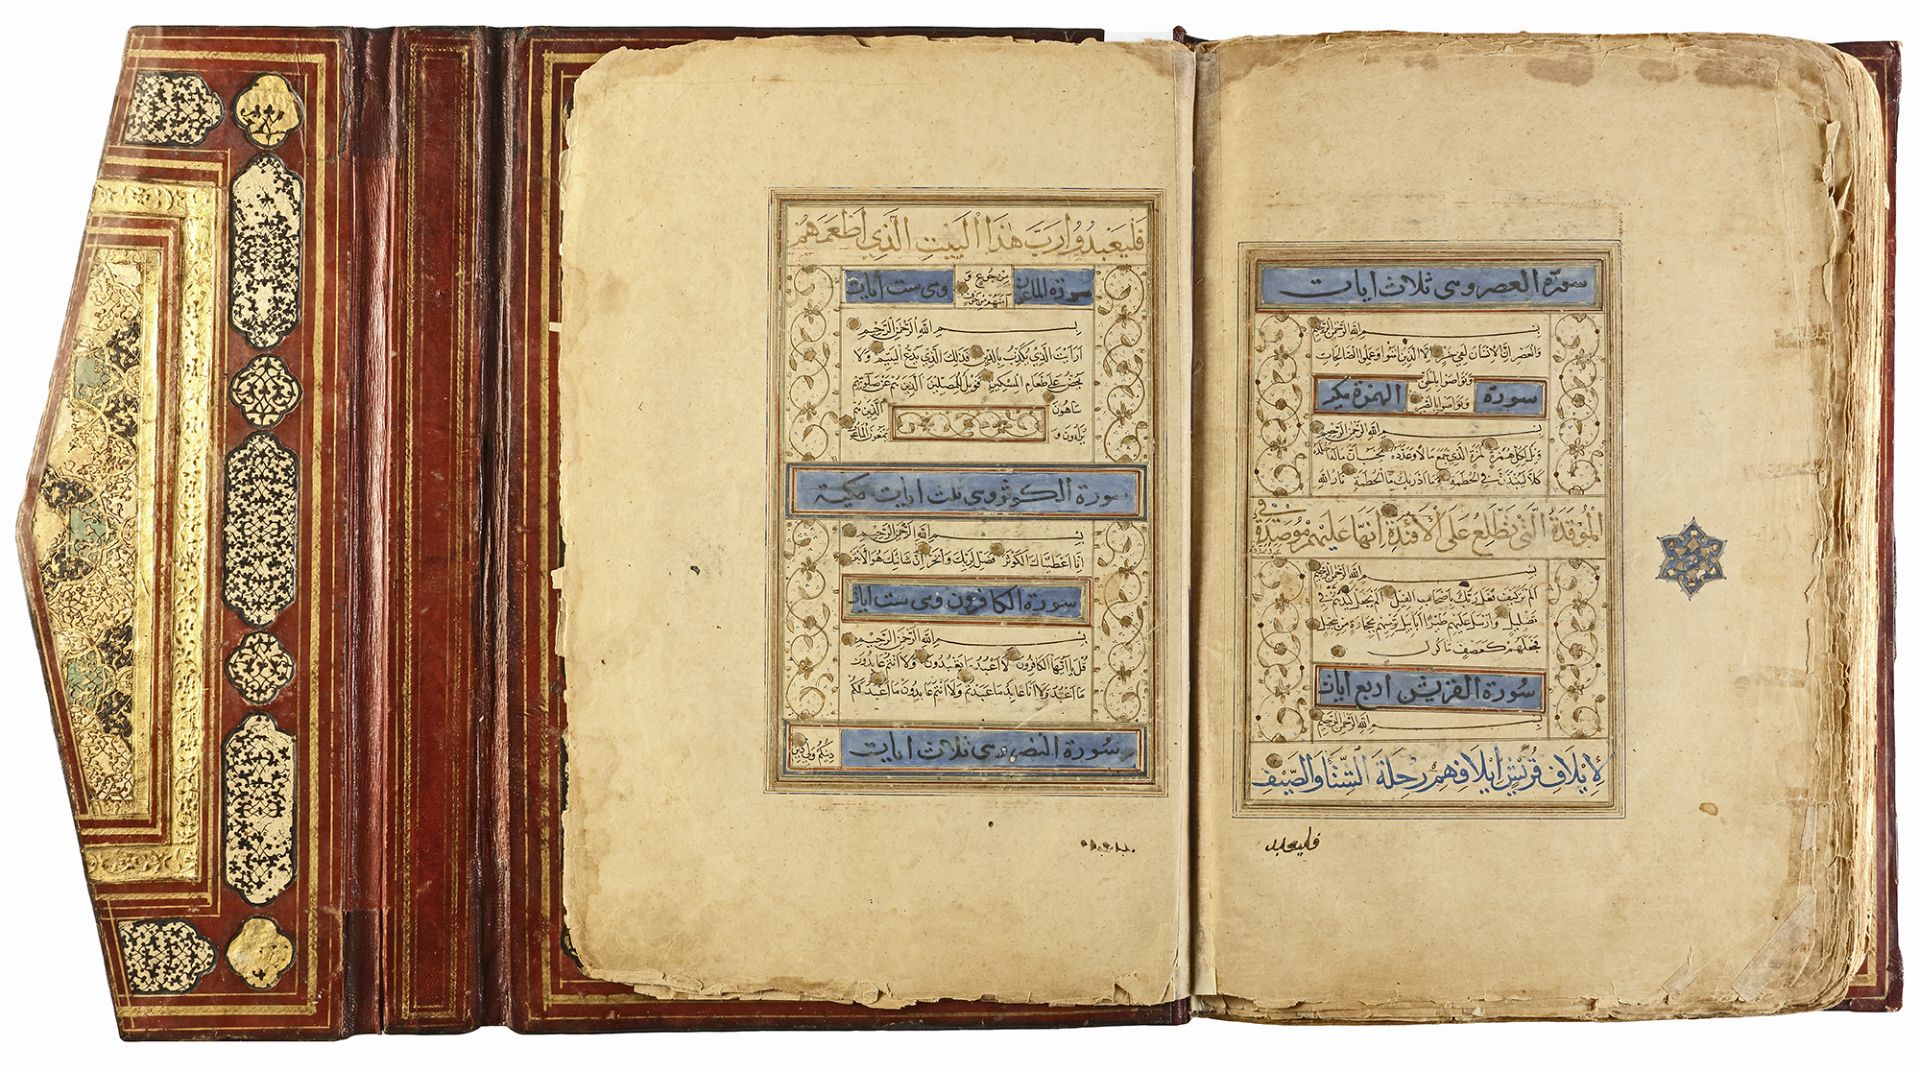 سورة العصر وهى ثلاث ايات
بسم الله الرحمن الرحيم
والعصر ان الانسان لفي خسر الا الذين امنوا وعملوا الصالحات
وتواصوا بالحق
سورة
الهمزة
وتواصوا بالصبر
بسم الله الرحمن الرحيم
ويل لكل همزة لمزة الذي جمع مالا وعدده يحسب ان ماله اخلده
كلا لينبذن في الحطمة وما ادريك ما الحطمة نار الله
الموقدة التي تطلع على الأفئدة انها عليهم موصدة في
بسم الله الرحمن الرحيم
الم تر كيف فعل ربك باصحاب الفيل الم يجعل كيدهم في
تضليل وارسل عليهم طيرا ابابيل ترميهم بحجارة من سجيل
فجعلهم كعصف ماكول
سورة القريش اربع ايات
بسم الله الرحمن الرحيم
لإيلاف قريش إيلافهم رحلة الشتاء والصيف
فليعبد
فليعبدوا رب هذا البيت الذي اطعمهم
من جوع و
سورة الماعون
وهى ست ايات
امنهم من خوف
بسم الله الرحمن الرحيم
ارايت الذي يكذب بالدين فذلك الذي يدع اليتيم ولا
يحض على طعام المسكين فويل للمصلين الذين هم عن صلوتهم
ساهون الذين هم
يراءون و يمنعون الماعون
سورة الكوثر وهى ثلث ايات مكية
بسم الله الرحمن الرحيم
انا اعطيناك الكوثر فصل لربك وانحر ان شانئك هو الابتر
سورة الكافرون وهى ست ايات
بسم الله الرحمن الرحيم
قل يا ايها الكافرون لا اعبد ما تعبدون ولا انتم عابدون
ما اعبد ولا انا عابد ما عبدتم ولا انتم عابدون ما اعبد لكم
سورة النصر وهى ثلاث ايات
دينكم ولي دين